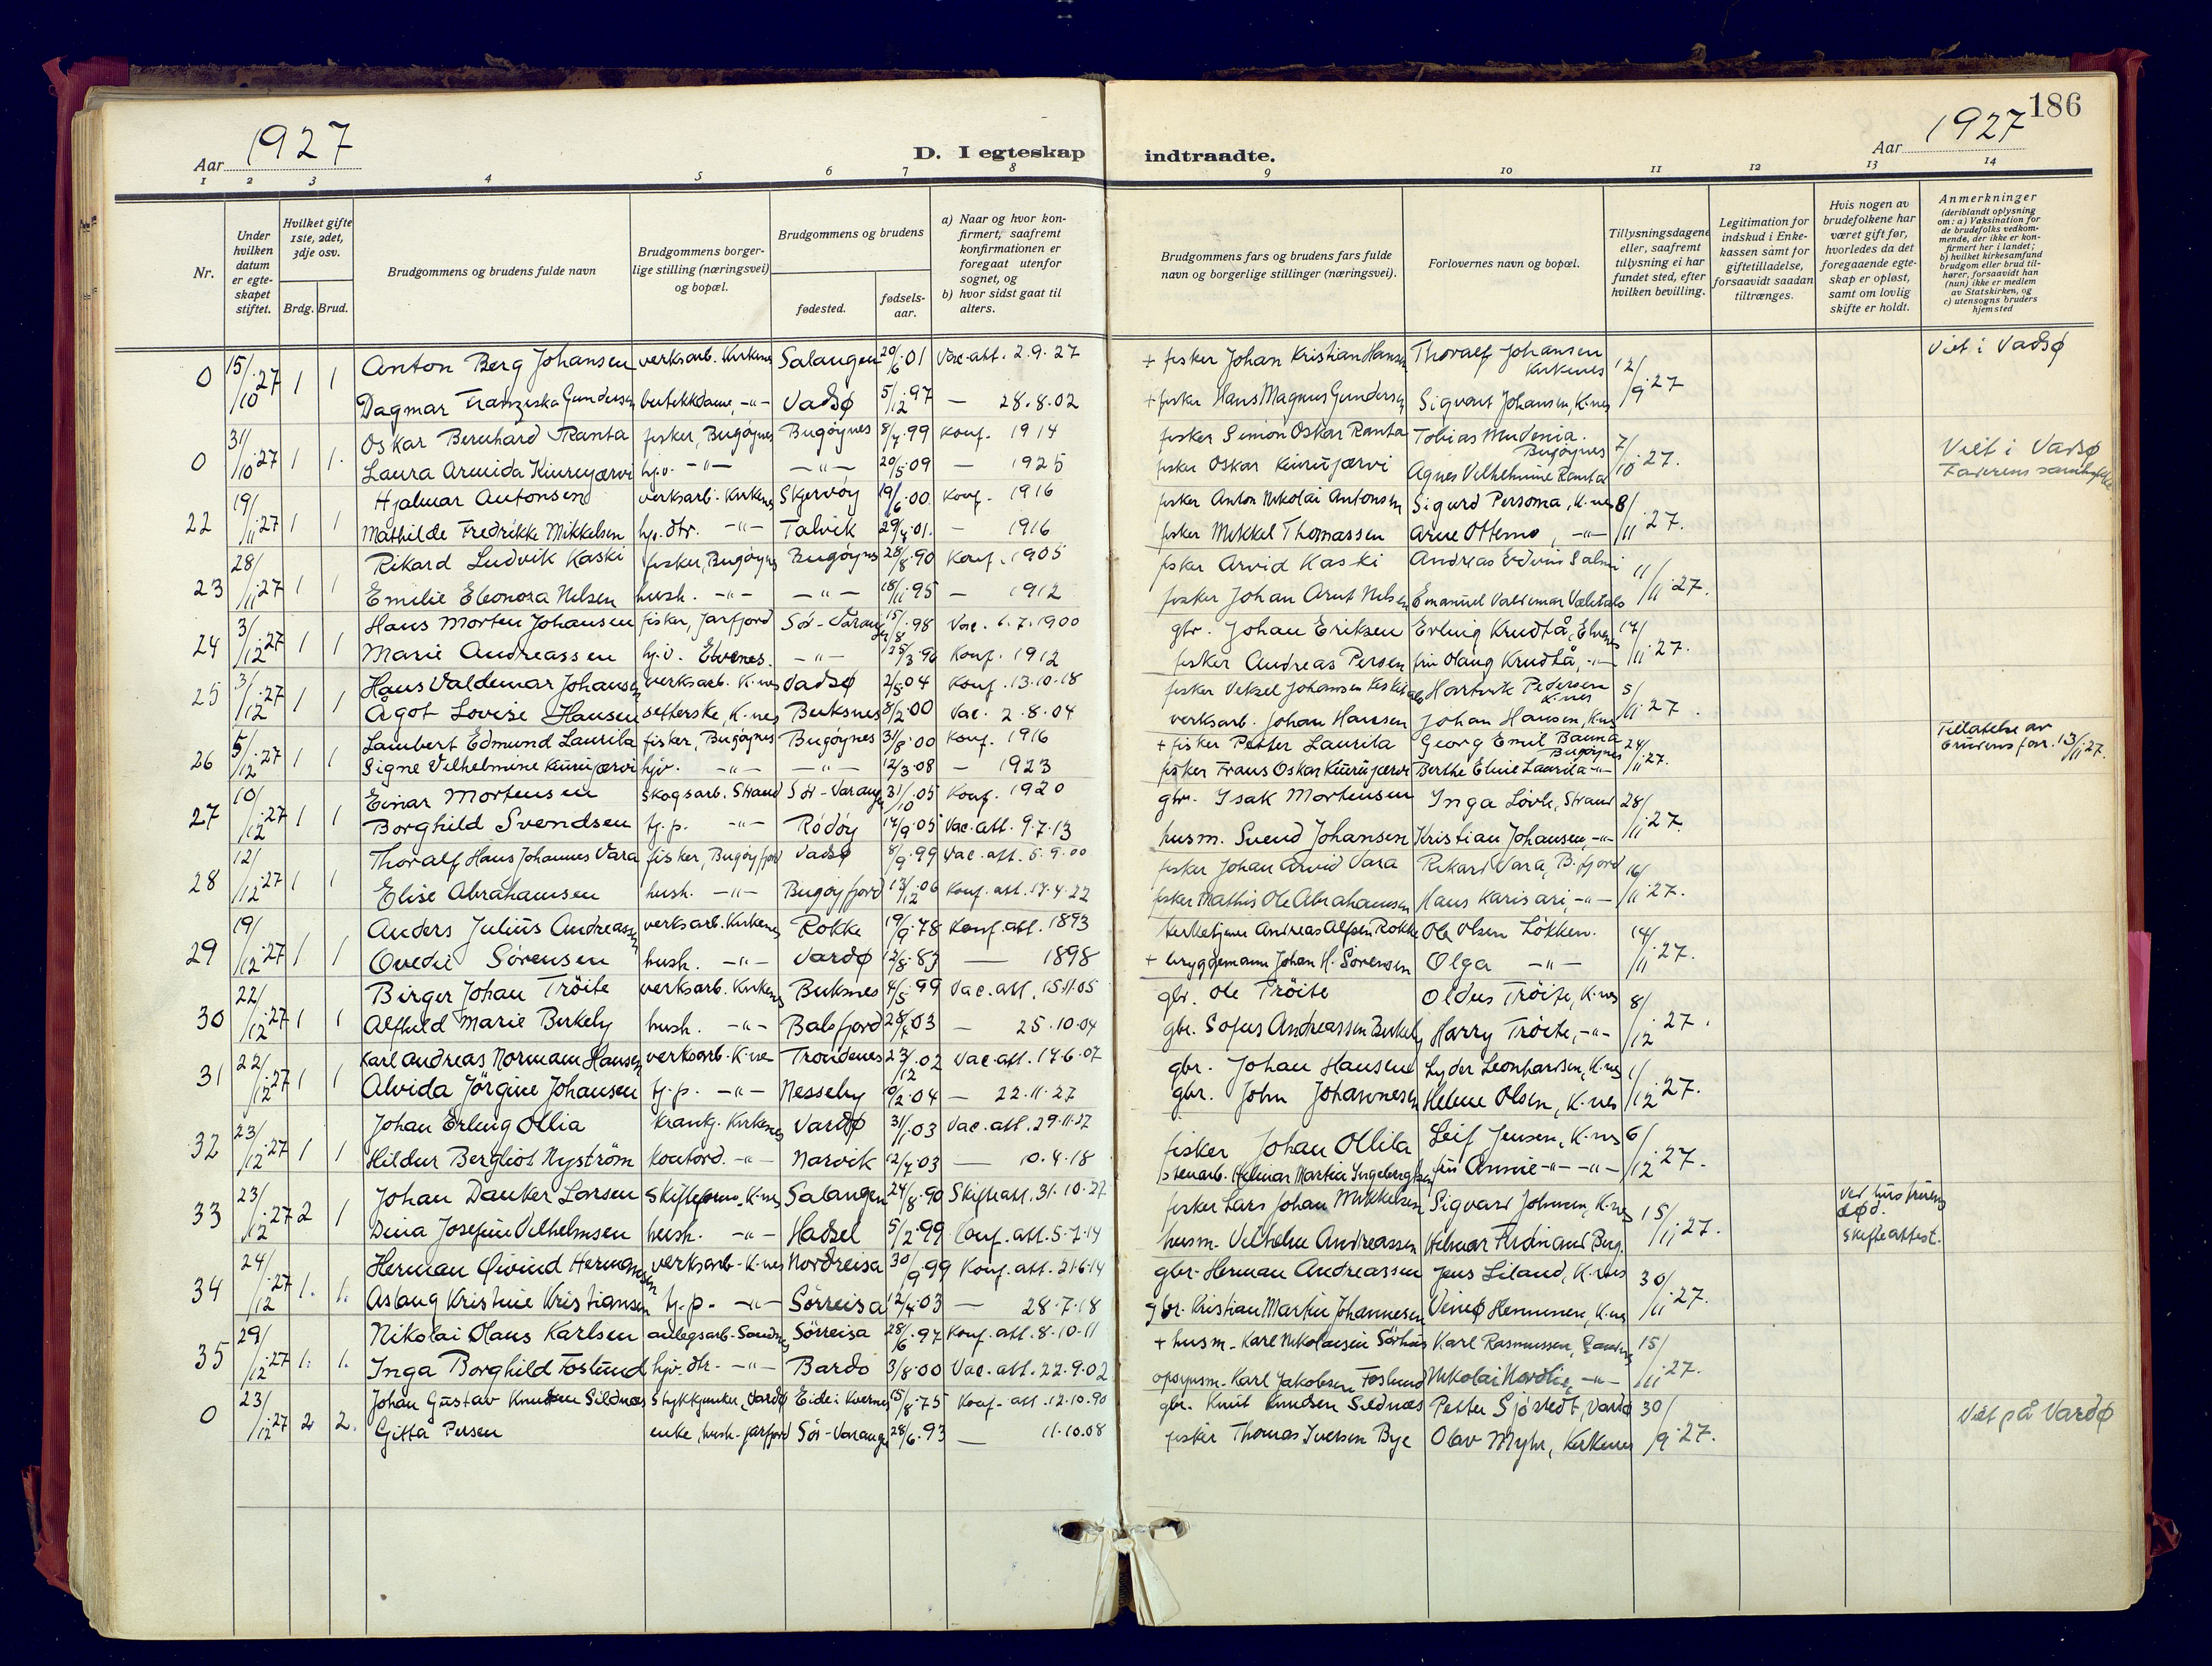 186
Aar 1927
D. I egteskap indtraadte.
Aar 1927
1 2 3 4 5 6 7 8 9 10 11 12 13 14
Nr.
Under hvilken datum er egteskapet stiftet.
Hvilket gifte 1ste, 2det, 3dje osv.
Brdg. Brud.
Brudgommens og brudens fulde navn
Brudgommens borgerlige stilling (næringsvei) og bopæl.
Brudgommens og brudens
fødested.
fødselsaar.
a) Naar og hvor konfirmert, saafremt konfirmationen er foregaat utenfor sognet, og
b) hvor sidst gaat til alters.
Brudgommens fars og brudens fars fulde navn og borgerlige stillinger (næringsvei).
Forlovernes navn og bopæl.
Tillysningsdagene eller, saafremt tillysning ei har fundet sted, efter hvilken bevilling.
Legitimation for indskud i Enkekassen samt for giftetilladelse, forsaavidt saadan tiltrænges.
Hvis nogen av brudefolkene har været gift før, hvorledes da det foregaaende egteskap er opløst, samt om lovlig skifte er holdt.
Anmerkninger (deriblandt oplysning om: a) Vaksination for de brudefolks vedkommende, der ikke er konfirmert her i landet; b) hvilket kirkesamfund brudgom eller brud tilhører, forsaavidt han (hun) ikke er medlem av Statskirken, og c) utensogns bruders hjemsted
0 15/10.27 1 1 Anton Berg Johansen verksarb. Kirkenes Salangen 20/6.01 Vac. att. 2.9.27 + fisker Johan Kristian Hansen Thoralf Johansen Kirkenes 12/9.27 Viet i Vadsø
Dagmar Franziska Gundersen butikkdame, -"- Vadsø 5/12 97 — 28.8.02 + fisker Hans Magnus Gundersen Sigvart Johansen, K.nes
0 31/10.27 1 1. Oskar Bernhard Ranta fisker, Bugøynes Bugøynes 8/7.99 Konf. 1914 fisker Simon Oskar Ranta Tobias Mudenia. Bugøynes 7/10.27. Viet i Vadsø
Laura Armida Kiurujærvi hj.v. -"- -"- 20/5.09 — 1925 fisker Oskar Kiurujærvi Agnes Vilhelmine Ranta Faderens samtykke
22 19/11.27 1 1 Hjalmar Antonsen verksarb. Kirkenes Skjervøy 19/6.00. Konf. 1916 fisker Anton Nikolai Antonsen Sigurd Persoma, K.nes 8/11.27.
Mathilde Fredrikke Mikkelsen hj.dtr. -"- Talvik 29/4.01. — 1916 fisker Mikkel Thomassen Arne Ottemo, -"-
23 28/11.27 1 1 Rikard Ludvik Kaski fisker, Bugøynes Bugøynes 28/8.90 Konf. 1905 fisker Arvid Kaski Andreas Edvin Salmi 11/11.27.
Emilie Eleonora Nilsen hush. -"- -"- 18/11.95 — 1912 fisker Johan Arnt Nilsen Emanuel Valdemar Vælitalo
24 3/12.27 1 1 Hans Morten Johansen fisker, Jarfjord Sør-Varanger 15/8.98 Vac. 6.7.1900 gbr. Johan Eriksen Erling Krudtå, Elvenes 17/11.27.
Marie Andreassen hj.v. Elvenes. -"- 25/3.96 Konf. 1912 fisker Andreas Persen fru Olaug Krudtå, -"-
25 3/12.27 1 1 Hans Valdemar Johansen verksarb. K.nes Vadsø 2/5.04 Konf. 13.10.18 fisker Veksel Johansen Keskitalo Hartvik Pedersen K.nes 5/11.27.
Ågot Lovise Hansen setterske, K.nes Buksnes 8/2.00 Vac. 2.8.04 verksarb. Johan Hansen Johan Hansen, K.nes
26 5/12.27 1 1 Lambert Edmund Laurila fisker, Bugøynes Bugøynes 31/8.00 Konf. 1916 + fisker Petter Laurila Georg Emil Bauna Bugøynes 24/11.27. Tillatelse av brudens far. 13/11.27.
Signe Vilhelmine Kiurujærvi hjv. -"- -"- 12/3.08 — 1923 fisker Frans Oskar Kiurujærvi Berthe Eline Laurila -"-
27 10/12.27 1 1 Einar Mortensen skogsarb. Strand Sør-Varanger 31/10.05 Konf. 1920 gbr. Isak Mortensen Inga Løvli, Strand 28/11.27.
Borghild Svendsen tj.p. -"- Rødøy 14/9.05 Vac. att. 9.7.13 husm. Svend Johansen Kristian Johansen, -"-
28 12/12.27 1 1 Thoralf Hans Johannes Vara fisker, Bugøyfjord Vadsø 8/9.99 Vac. att. 5.9.00 fisker Johan Arvid Vara Rikard Vara, B.fjord 16/11.27.
Elise Abrahamsen hush. -"- Bugøyfjord 13/12.06 Konf. att. 17.4.22 fisker Mathis Ole Abrahamsen Hans Karisari, -"-
29 19/12.27 1 1 Anders Julius Andreassen verksarb. Kirkenes Rokke 19/9.78 Konf. att. 1893 kirketjener Andreas Alfsen Rokke Ole Olsen Løkken. 14/11.27.
Ovedie Sørensen hush. -"- Vardø 12/8.83 — 1898 + bryggemann Johan H. Sørensen Olga -"-
30 22/12.27 1 1 Birger Johan Trøite verksarb. Kirkenes Buksnes 4/5.99 Vac. att. 15.11.05 gbr. Ole Trøite Oldus Trøite, K.nes 8/12.27.
Alfhild Marie Berkely hush. -"- Balsfjord 28/7.03 — 25.10.04 gbr. Sofus Andreassen Berkely Harry Trøite, -"-
31 22/12.27 1 1 Karl Andreas Normann Hansen verksarb. K.nes Trondenes 23/12.02 Vac. att. 17.6.07 gbr. Johan Hansen Lyder Leonhardsen, K.nes 1/12.27.
Alvida Jørgine Johansen tj.p. -"- Nesseby 9/2.04 — 22.11.27 gbr. John Johannesen Helene Olsen, K.nes
32 23/12.27 1 1 Johan Erling Ollia krantg. Kirkenes Vardø 31/1.03 Vac. att. 29.11.27 fisker Johan Ollila Leif Jensen, K.nes 6/12.27.
Hildur Bergliot Nyström kontord. -"- Narvik 12/4.03 — 10.4.18 stenarb. Helmar Martin Ingebergtsen frk Annie -"- -"-
33 23/12.27 2 1 Johan Danker Larsen skifteform. K.nes Salangen 24/8.90 Skifteatt. 31.10.27 fisker Lars Johan Mikkelsen Sigvard Johnsen, K.nes 15/11.27. ved hustruens død. skifteattest.
Dina Josefine Vilhelmsen hush. -"- Hadsel 5/2.99 Conf. att. 5.7.14 husm. Vilhelm Andreassen Hilmar Ferdinand Berg.
34 24/12.27 1. 1. Herman Eivind Hermansen verksarb. K.nes Nordreisa 30/9.99 Konf. att. 21.6.14 gbr. Herman Andreassen Jens Liland, K.nes 30/11.27.
Aslaug Kristine Kristiansen tj.p. -"- Sørreisa 12/4.03 — 28.7.18 gbr. Kristian Martin Johannesen Veinø Henninen, K.nes
35 29/12.27 1. 1. Nikolai Olaus Karlsen anlegsarb. Sandnes Sørreisa 28/6.97 Konf. att. 8.10.11 + husm. Karl Nikolaisen Sørhus Karl Rasmussen, Sandnes 15/11.27.
Inga Borghild Foslund hjv. dtr. -"- Bardo 3/8.00 Vac. att. 22.9.02 opsynsm. Karl Jakobsen Foslund Nikolai Nordlie, -"-
0 23/12.27 2 2. Johan Gustav Knudsen Sildnes stykkjunker, Vardø Eide i Kvernes 15/8.75 Konf. att. 12.10.90 gbr. Knut Knudsen Sildnes Petter Sjøstedt, Vardø 30/9.27. Viet på Vardø
Gitta Persen enke, hush. Jarfjord Sør-Varanger 28/6.93 — 11.10.08 fisker Thomas Iversen Bye Olav Myhr, Kirkenes